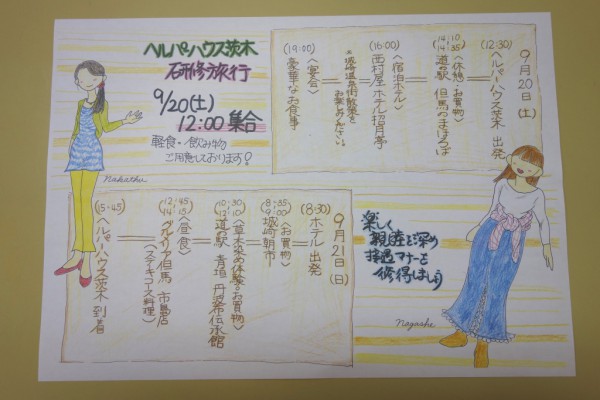 ヘルパーハウス茨木
研修旅行
9/20(土)
12:00 集合
軽食・飲み物
ご用意しております!
Nakatha
9月20日(土)
(12:30)
ヘルパーハウス茨木 出発
(14:10
14:35)
〈休憩・お買物〉
道の駅 但馬のまほろば
(16:00)
〈宿泊ホテル〉
西村屋ホテル招月亭
お楽しみください。
(19:00)
〈宴会〉
豪華なお食事
9月21日(日)
(8:30)
ホテル 出発
(8:35
9:00)
〈お買物〉
城崎朝市
(10:30
12:10)
〈草木染め体験・お買物〉
道の駅 青垣 丹波布伝承館
(12:45
14:15)
〈昼食〉
ベルペリア但馬 市島店
(ステーキコース料理)
(15:45)
ヘルパーハウス茨木 到着
楽しく
親睦を深め
接遇マナーを
修得しましょう